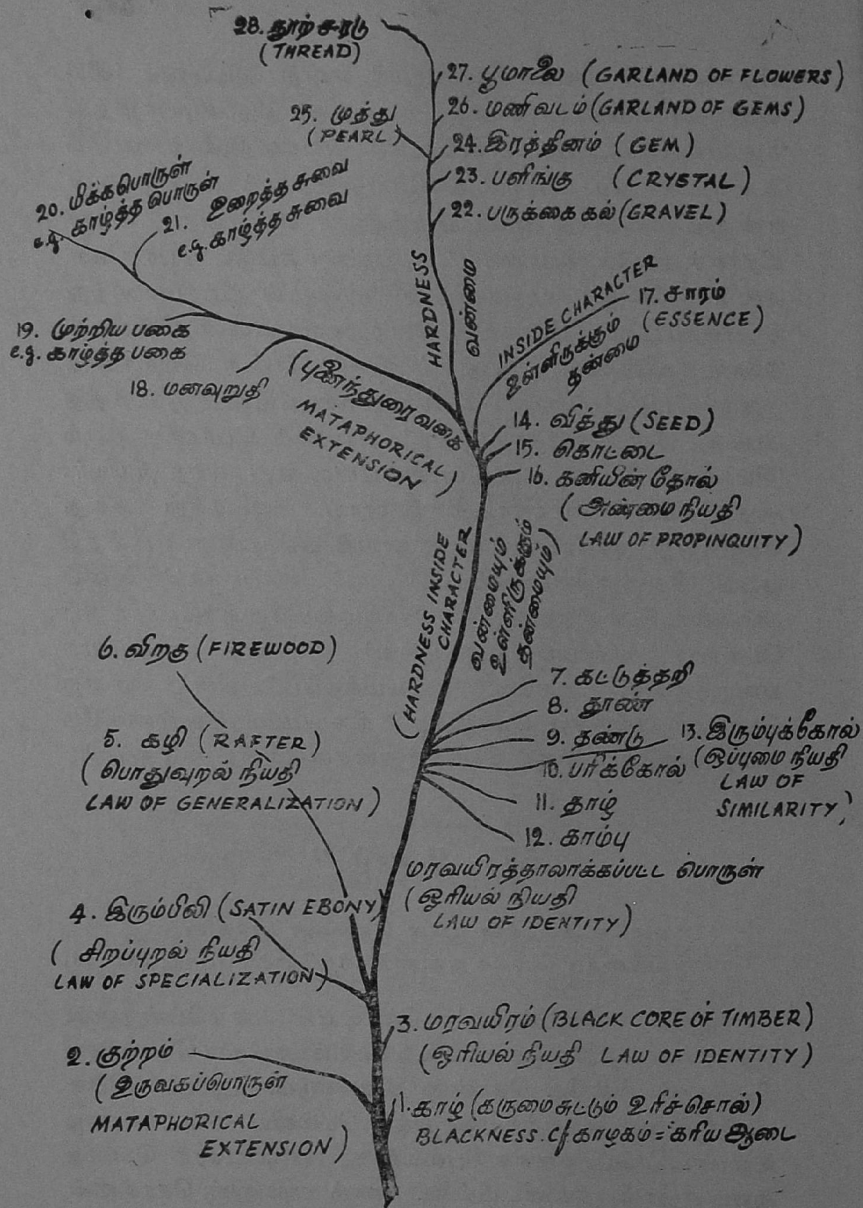 28. நூற்சரடு
(THREAD)
27. பூமாலை (GARLAND OF FLOWERS)
26. மணிவடம் (GARLAND OF GEMS)
25. முத்து
(PEARL)
24. இரத்தினம் (GEM)
23. பளிங்கு (CRYSTAL)
22. பருக்கைகல் (GRAVEL)
20. மிக்கபொருள்
e.g. காழ்த்த பொருள்
21. உறைத்த சுவை
e.g. காழ்த்த சுவை
HARDNESS
வன்மை
INSIDE CHARACTER
உள்ளிருக்கும்
தன்மை
17. சாரம்
(ESSENCE)
19. முற்றிய பகை
e.g. காழ்த்த பகை
18. மனவுறுதி
(புணைந்துரைவகை
MATAPHORICAL
EXTENSION)
14. வித்து (SEED)
15. கொட்டை
16. கனியின் தோல்
(அண்மை நியதி
LAW OF PROPINQUITY)
(HARDNESS INSIDE
CHARACTER
வன்மையும்
உள்ளிருக்கும்
தன்மையும்)
6. விறகு (FIREWOOD)
7. கட்டுத்தறி
8. தூண்
9. தண்டு
10. பரிக்கோல்
13. இரும்புக்கோல்
(ஒப்புமை நியதி
LAW OF
SIMILARITY)
11. தாழ்
12. காம்பு
5. கழி (RAFTER)
(பொதுவுறல் நியதி
LAW OF GENERALIZATION)
மரவயிரத்தாலாக்கப்பட்ட பொருள்
(ஓரியல் நியதி
LAW OF IDENTITY)
4. இரும்பிலி (SATIN EBONY)
(சிறப்புறல் நியதி
LAW OF SPECIALIZATION)
3. மரவயிரம் (BLACK CORE OF TIMBER)
(ஓரியல் நியதி LAW OF IDENTITY)
2. குற்றம்
(உருவகப்பொருள்
MATAPHORICAL
EXTENSION)
1. காழ் (கருமைசுட்டும் உரிச்சொல்)
BLACKNESS. Cf காழகம் = கரிய ஆடை